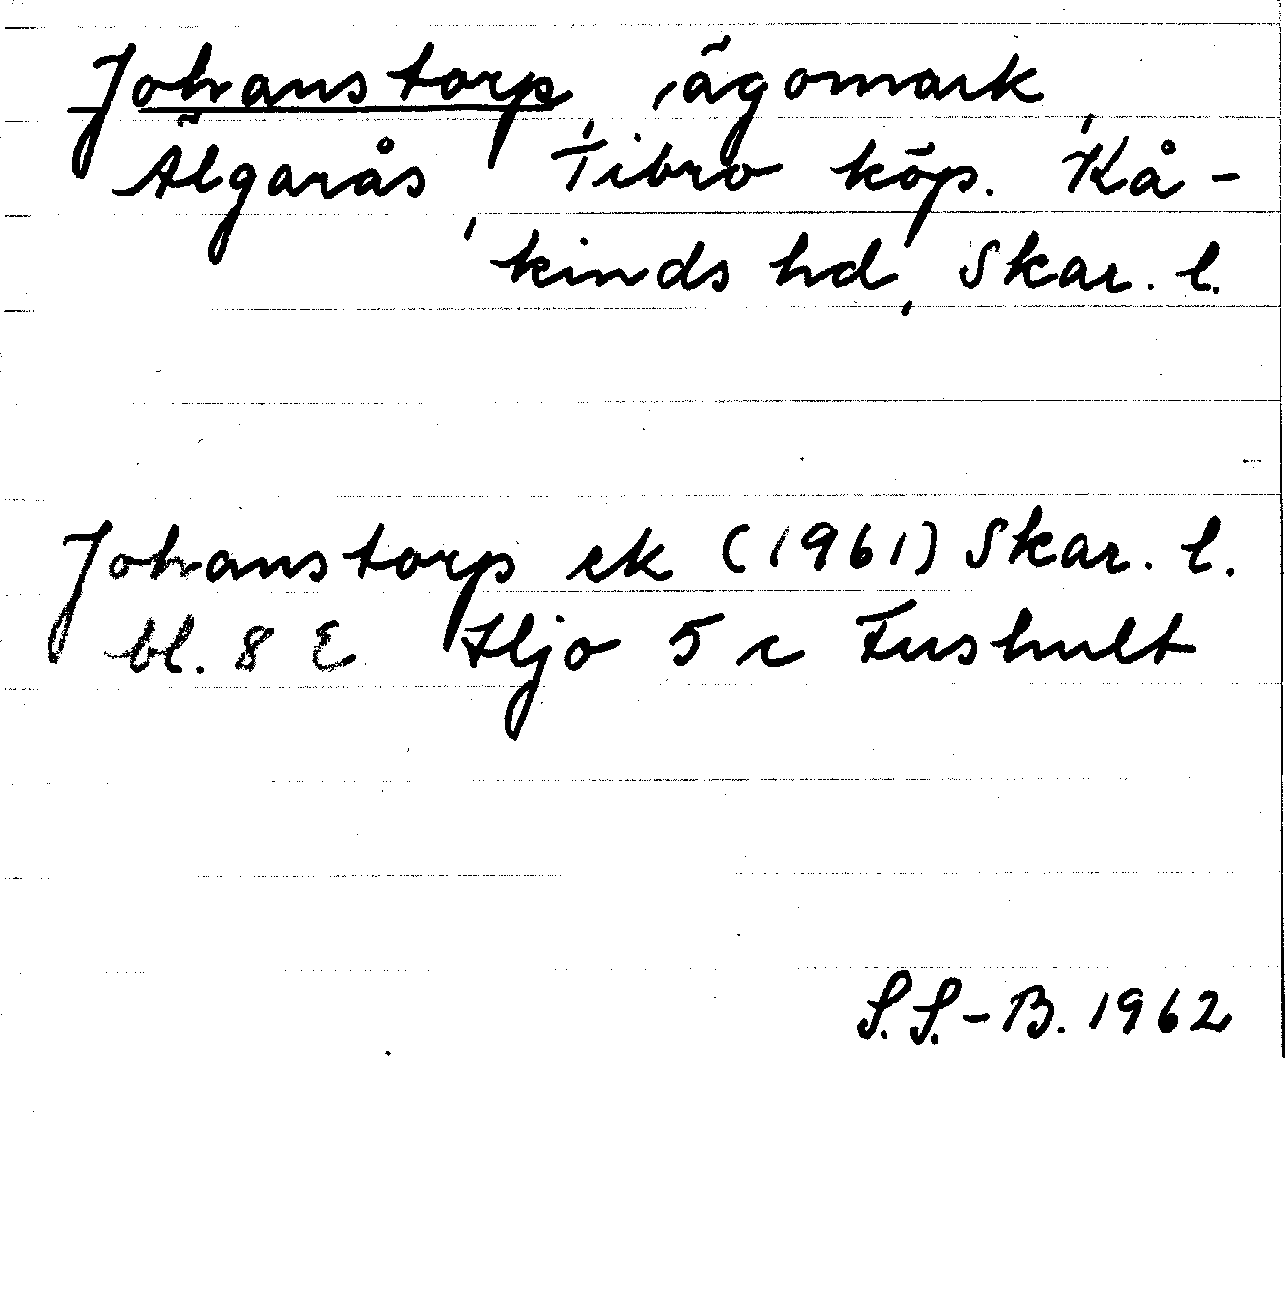 Johanstorp, ägomark,
Älgarås, Tibro köp. Kå-
kinds hd, Skar. l.
Johanstorp ek (1961) Skar. l.
bl. 8 E Hjo 5 c Fushult
S.S.-B. 1962